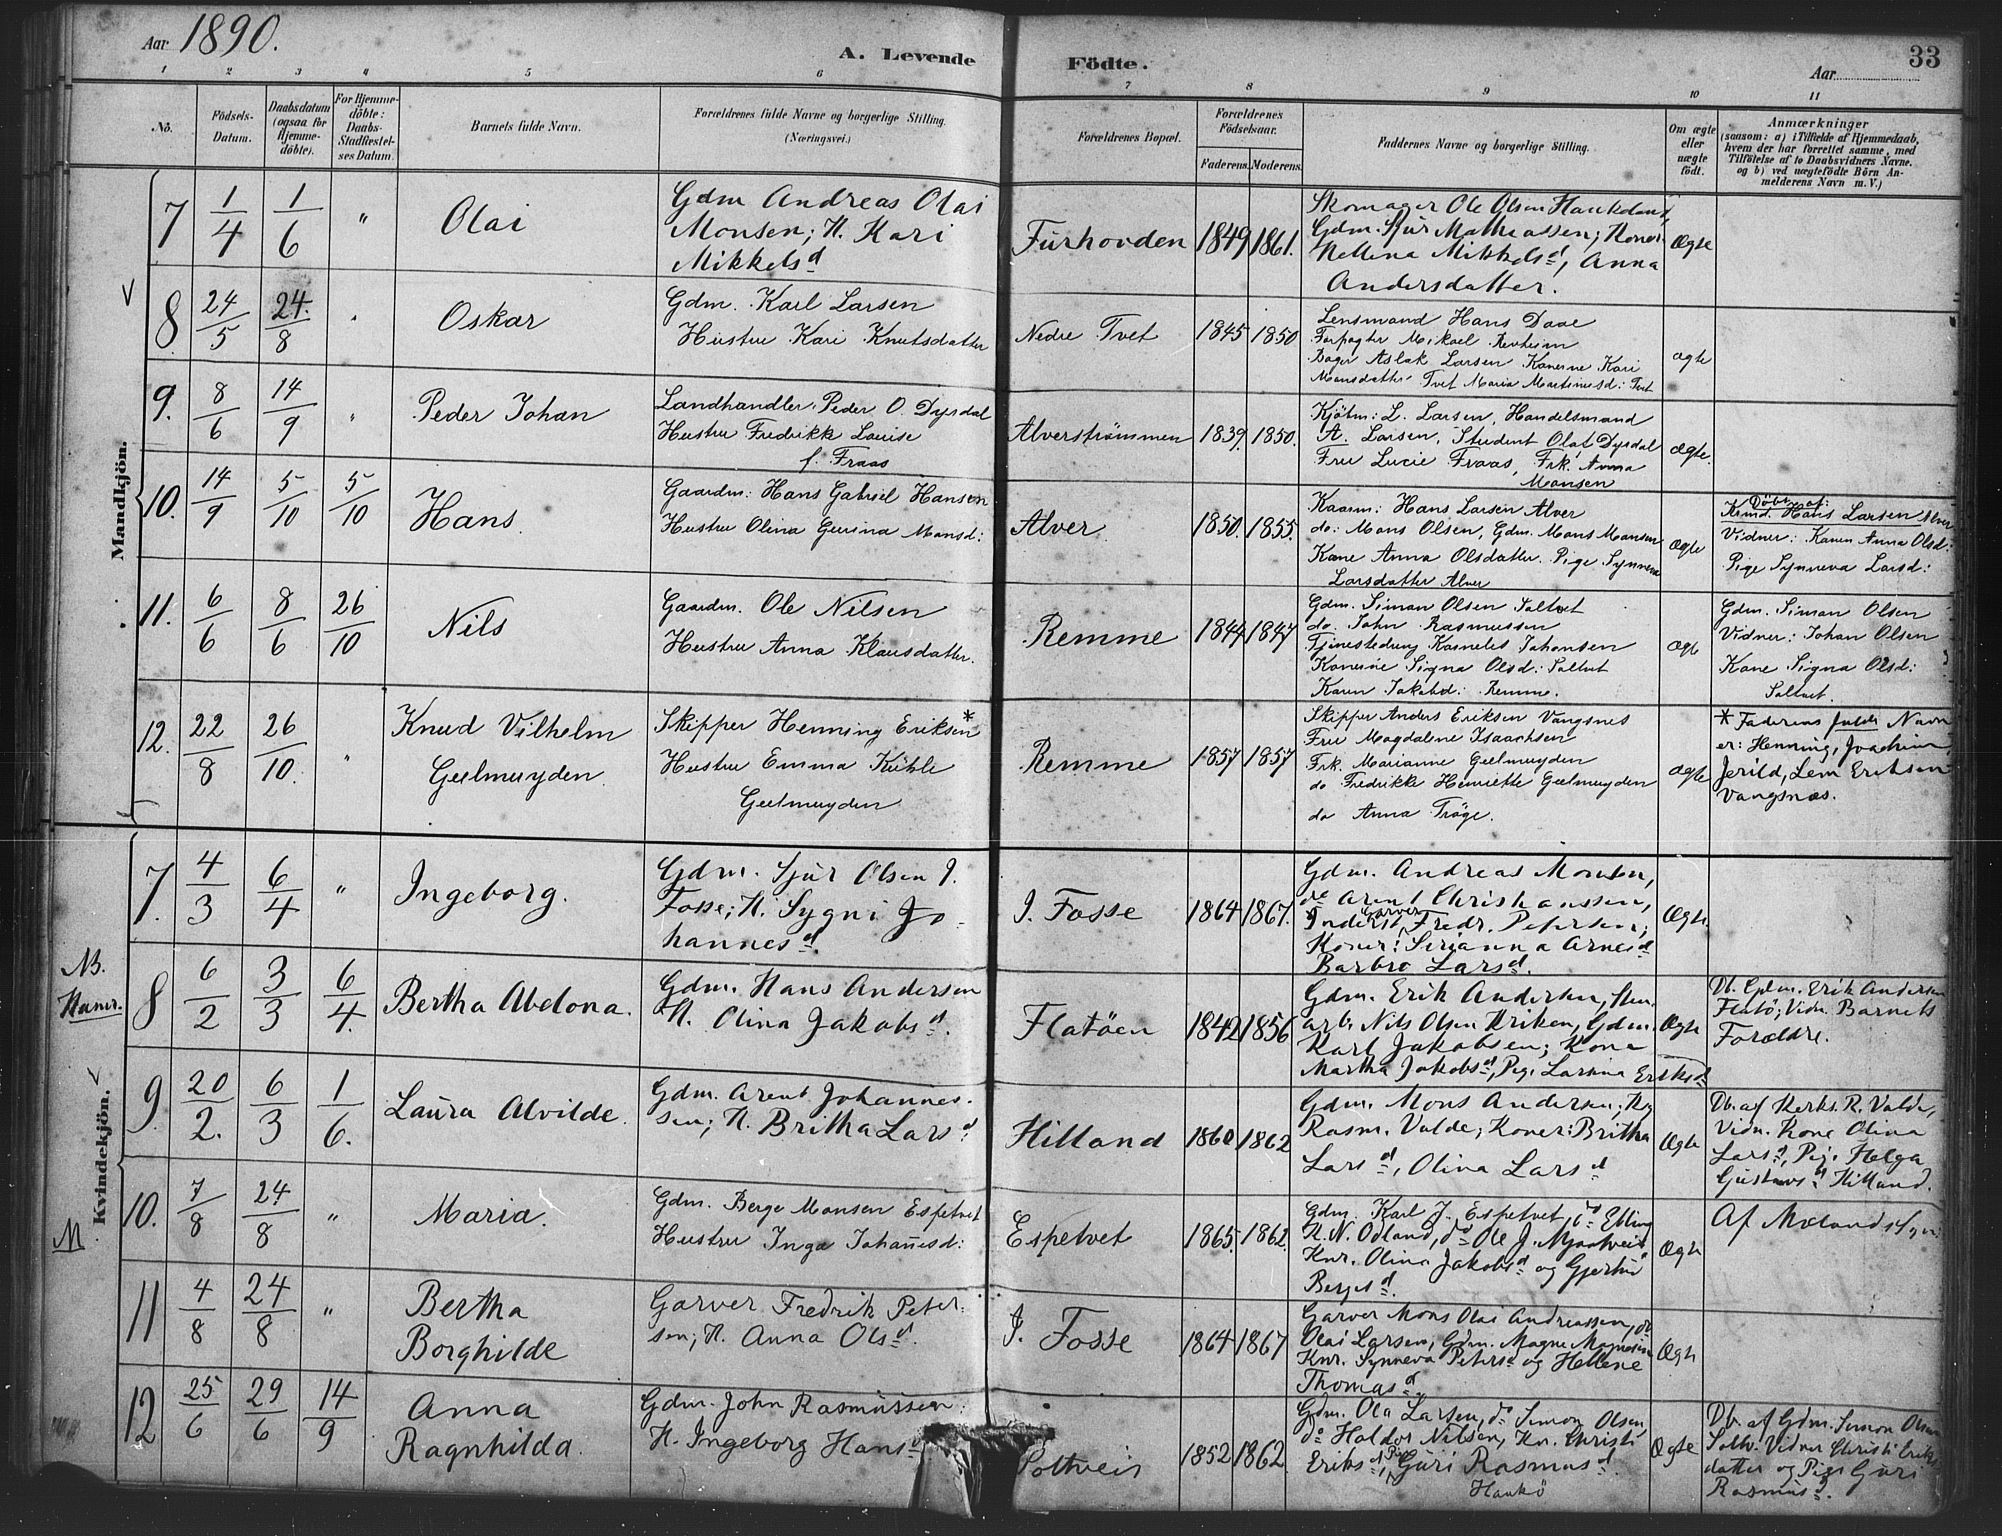 Aar 1890.
A. Levende
Födte.
Aar
33
1 2 3 4 5 6 7 8 9 10 11
No.
Födsels-Datum.
Daabsdatum (ogsaa for Hjemme-döbte).
For Hjemme-döbte: Daabs-Stadfæstel-ses Datum.
Barnets fulde Navn.
Forældrenes fulde Navne og borgerlige Stilling. (Næringsvei.)
Forældrenes Bopæl.
Forældrenes Födselsaar.
Faderens. Moderens.
Faddernes Navne og borgerlige Stilling.
Om ægte eller uægte födt.
Anmærkninger
(saasom: a) i Tilfælde af Hjemmedaab, hvem der har forrettet samme, med Tilföielse af to Daabsvidners Navne, og b) ved uægtefödte Börn An-melderens Navn m. V.)
Mandkjön.
7 1/4 1/6 " Olai
Gdm Andreas Olai
Monsen; H. Kari
Mikkelsd
Furhovden 1849 1861.
Skomager Ole Olsen
Gdm. Sjur Mathiassen; Koner
Nellena Mikkelsd, Anna
Andersdatter.
Ægte
8 24/5 24/8 " Oskar
Gdm. Karl Larsen
Hustru Kari Knutsdatter
Nedre Tvet 1845 1850
Lensmand Hans Daae
Forpagter Mikael Revheim
Bager Aslak Larsen Konerne Kari
Monsdatter Tvet Maria
ægte
9. 8/6 14/9 " Peder Johan
Landhandler Peder O. Dysdal
Hustru Fredrikk Louise
f. Fraas
Alverstrømmen 1839. 1850.
Kjøbm: L. Larsen, Handelsmand
A. Larsen, Student Olaf Dysdal
Fru Lucie Fraas, Frk. Anna
Monsen
ægte.
10. 14/9 5/10 5/10 Hans.
Gaardm: Hans Gabriel Hansen
Hustru Olina Gurina Monsd:
Alver 1850. 1855.
Kaarm: Hans Larsen Alver
do: Mons Olsen, Gdm. Mons Monsen
Kone Anna Olsdatter. Pige Synneva
Larsdatter Alver
ægte
Døbt af:
Hans Larsen Alver
Vidner: Konen Anna Olsd:
Pige Synneva Larsd:
11. 6/6 8/6 26/10 Nils
Gaardm. Ole Nilsen
Hustru Anna Klausdatter.
Remme 1844 1847
Gdm. Simon Olsen Soltvet
do. John Rasmussen
Tjenestedreng Kornelius Johansen
Konerne Signa Olsd: Soltvet
Karen Jakobsd: Remme.
ægte
Gdm. Simon Olsen
Vidner: Johan Olsen
Kone Signa Olsd:
Soltvet
12. 22/8 26/10. " Knud Vilhelm
Geelmuyden
Skipper Henning Eriksen *
Hustru Emma Kühle
Geelmuyden
Remme 1857 1857
Skipper Anders Eriksen Vangsnes
Fru Magdalene Isaachsen
Frk. Marianne Geelmuyden
do Fredrikke Henriette Geelmuyden
do Anna Trøge.
ægte
* Faderens fulde Navn
er: Henning, Joachim,
Jerild, Lem Eriksen
Vangsnæs.
Kvindekjön.
7. 4/3 6/4 " Ingeborg.
Gdm. Sjur Olsen I.
Fosse; H. Sygni Jo-
hannesd
I. Fosse 1864 1867.
Gdm. Andreas Monsen,
do Arent Christianssen,
Inderst, Garver Fredr. Petersen;
Koner: Serianna Arnesd
Barbro Larsd.
Ægte
NB.
Hamr.
8 6/2 3/3 6/4. Bertha Abelona.
Gdm. Hans Andersen
H. Olina Jakobsd.
Flatöen 1842 1856
Gdm. Erik Andersen, Sten-
arb. Nils Olsen Kriken, Gdm.
Karl Jakobsen; Kona
Martha Jakobsd, Pige Larsina Eriksd
Ægte
Db. Gdm. Erik Andersen
Flatö; Vidn. Barnets
Forældre.
9 20/2. 6/3 1/6. Laura Alvilde.
Gdm. Arent Johannes-
sen; H. Britha Larsd
Hilland 1860 1862
Gdm. Mons Andersen; Ks
Rasm. Valde; Koner: Britha
Larsd, Olina Larsd
Ægte
Db. af Kerks. R. Valde,
Vidn. Kone Olina
Larsd, Pige Helga
Gustavsd Hilland.
10. 7/8 24/8 " Maria.
Gdm. Berge Monsen Espetvet
Hustru Inga Johannesd:
Espetvet 1865. 1862.
Gdm. Karl J. Espetvet, do Elling
K. N. Odland, do Ole J. Mjaatveit
Knr. Olina Jakobsd og Gjertrud
Bergesd.
Ægte
Af Mælands
11 4/8 24/8 " Bertha
Borghilde
Garver Fredrik Peter-
sen; H. Anna Olsd
I. Fosse 1864 1867
Garver Mons Olai Andreassen, do
Olai Larsen, Gdm. Magne Magnesen
Knr. Synneva Petersd og Hellene
Thomasd.
Ægte
12 25/6 29/6 14/9 Anna
Ragnhilda.
Gdm. John Rasmussen.
H. Ingeborg Hansd
Soltveit 1852 1862
Gdm. Ola Larsen, do Simon Olsen
do Haldor Nilsen, Kn. Christi
Eriksd, Pige Guri Rasmusd.
Haukö
Ægte
Db. af Gdm. Simon Olsen
Soltv. Vidner Christi Eriks-
datter og Pige Guri
Rasmusd.